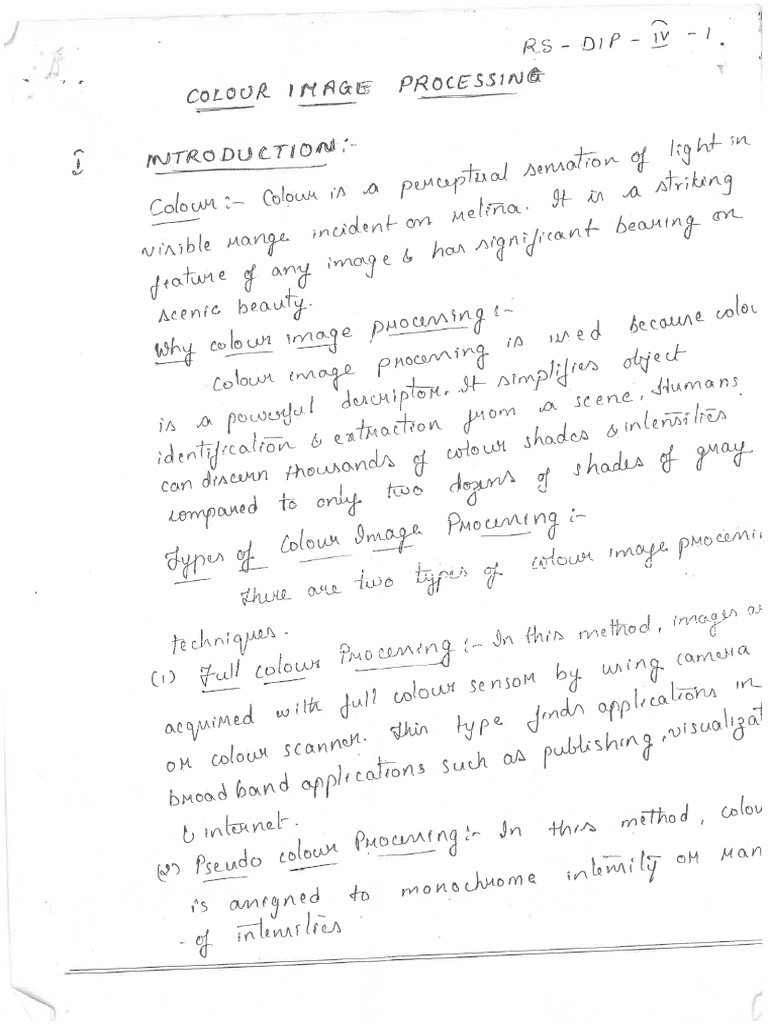 RS - DIP - IV - 1.
COLOUR IMAGE PROCESSING
I INTRODUCTION:-
Colour:- Colour is a perceptual sensation of light in
visible range incident on retina. It is a striking
feature of any image & has significant bearing on
scenic beauty.
Why colour image processing:-
Colour image processing is used because colou
is a powerful descriptor. It simplifies object
identification & extraction from a scene. Humans
can discern thousands of colour shades & intensities
compared to only two dozens of shades of gray
Types of Colour Image Processing:-
There are two types of colour image processin
techniques.
(1) Full colour Processing:- In this method, images ar
acquired with full colour sensor by using camera
or colour scanner. This type finds applications in
broad band applications such as publishing, visualizat
& internet.
(2) Pseudo colour Processing:- In this method, colou
is assigned to monochrome intensity or ran
- of intensities